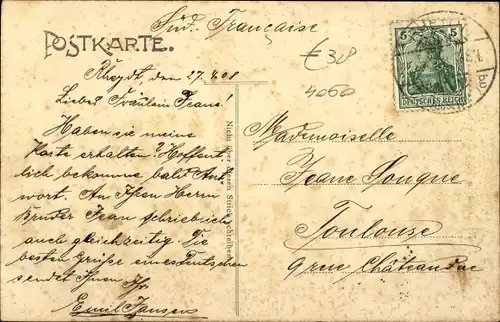 Süd. Française
POSTKARTE.
€ 38
4060
5 5
DEUTSCHES REICH
Rheydt den 27.4.08
Liebes Fräulein Jeane!
Haben sie meine
Karte erhalten? Hoffent
lich bekomme bald Ant
wort. An Ihren Herrn
Bruder Jean schrieb ich
auch gleichzeitig. Die
besten Grüße eines Deutschen
sendet Ihnen Ihr
Emil Jansen
Nicht über diesen Strich schreiben!
Mademoiselle
Jeane
Toulouse
9 rue